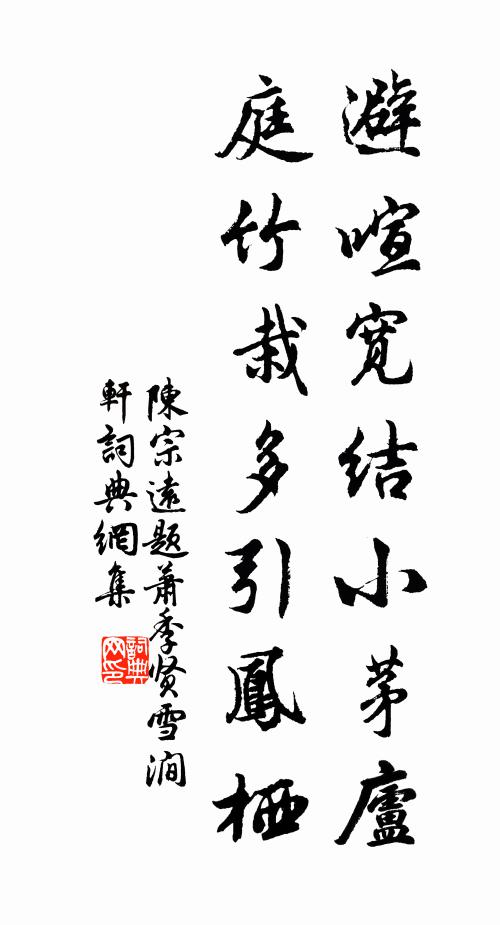 避喧寬結小茅廬
庭竹栽多引鳳栖
陳宗遠題蕭季贤雪澗
軒詞典網集
詞典網印